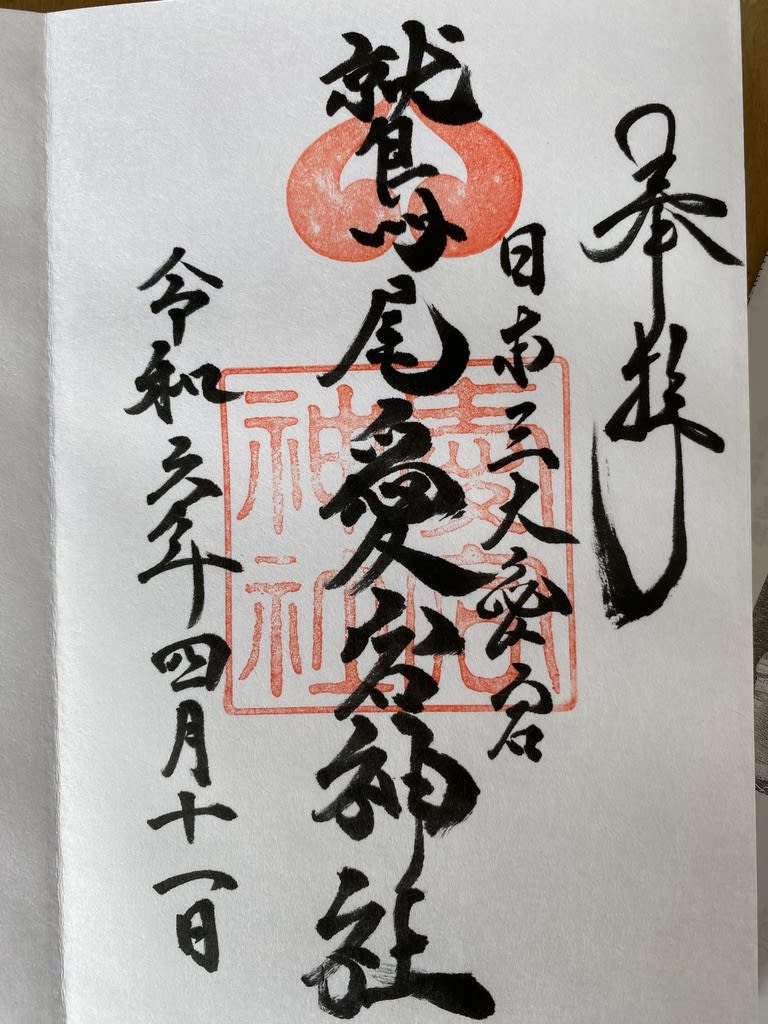 奉拝
日本三大愛宕
鷲尾愛宕神社
愛宕神社
令和六年四月十一日